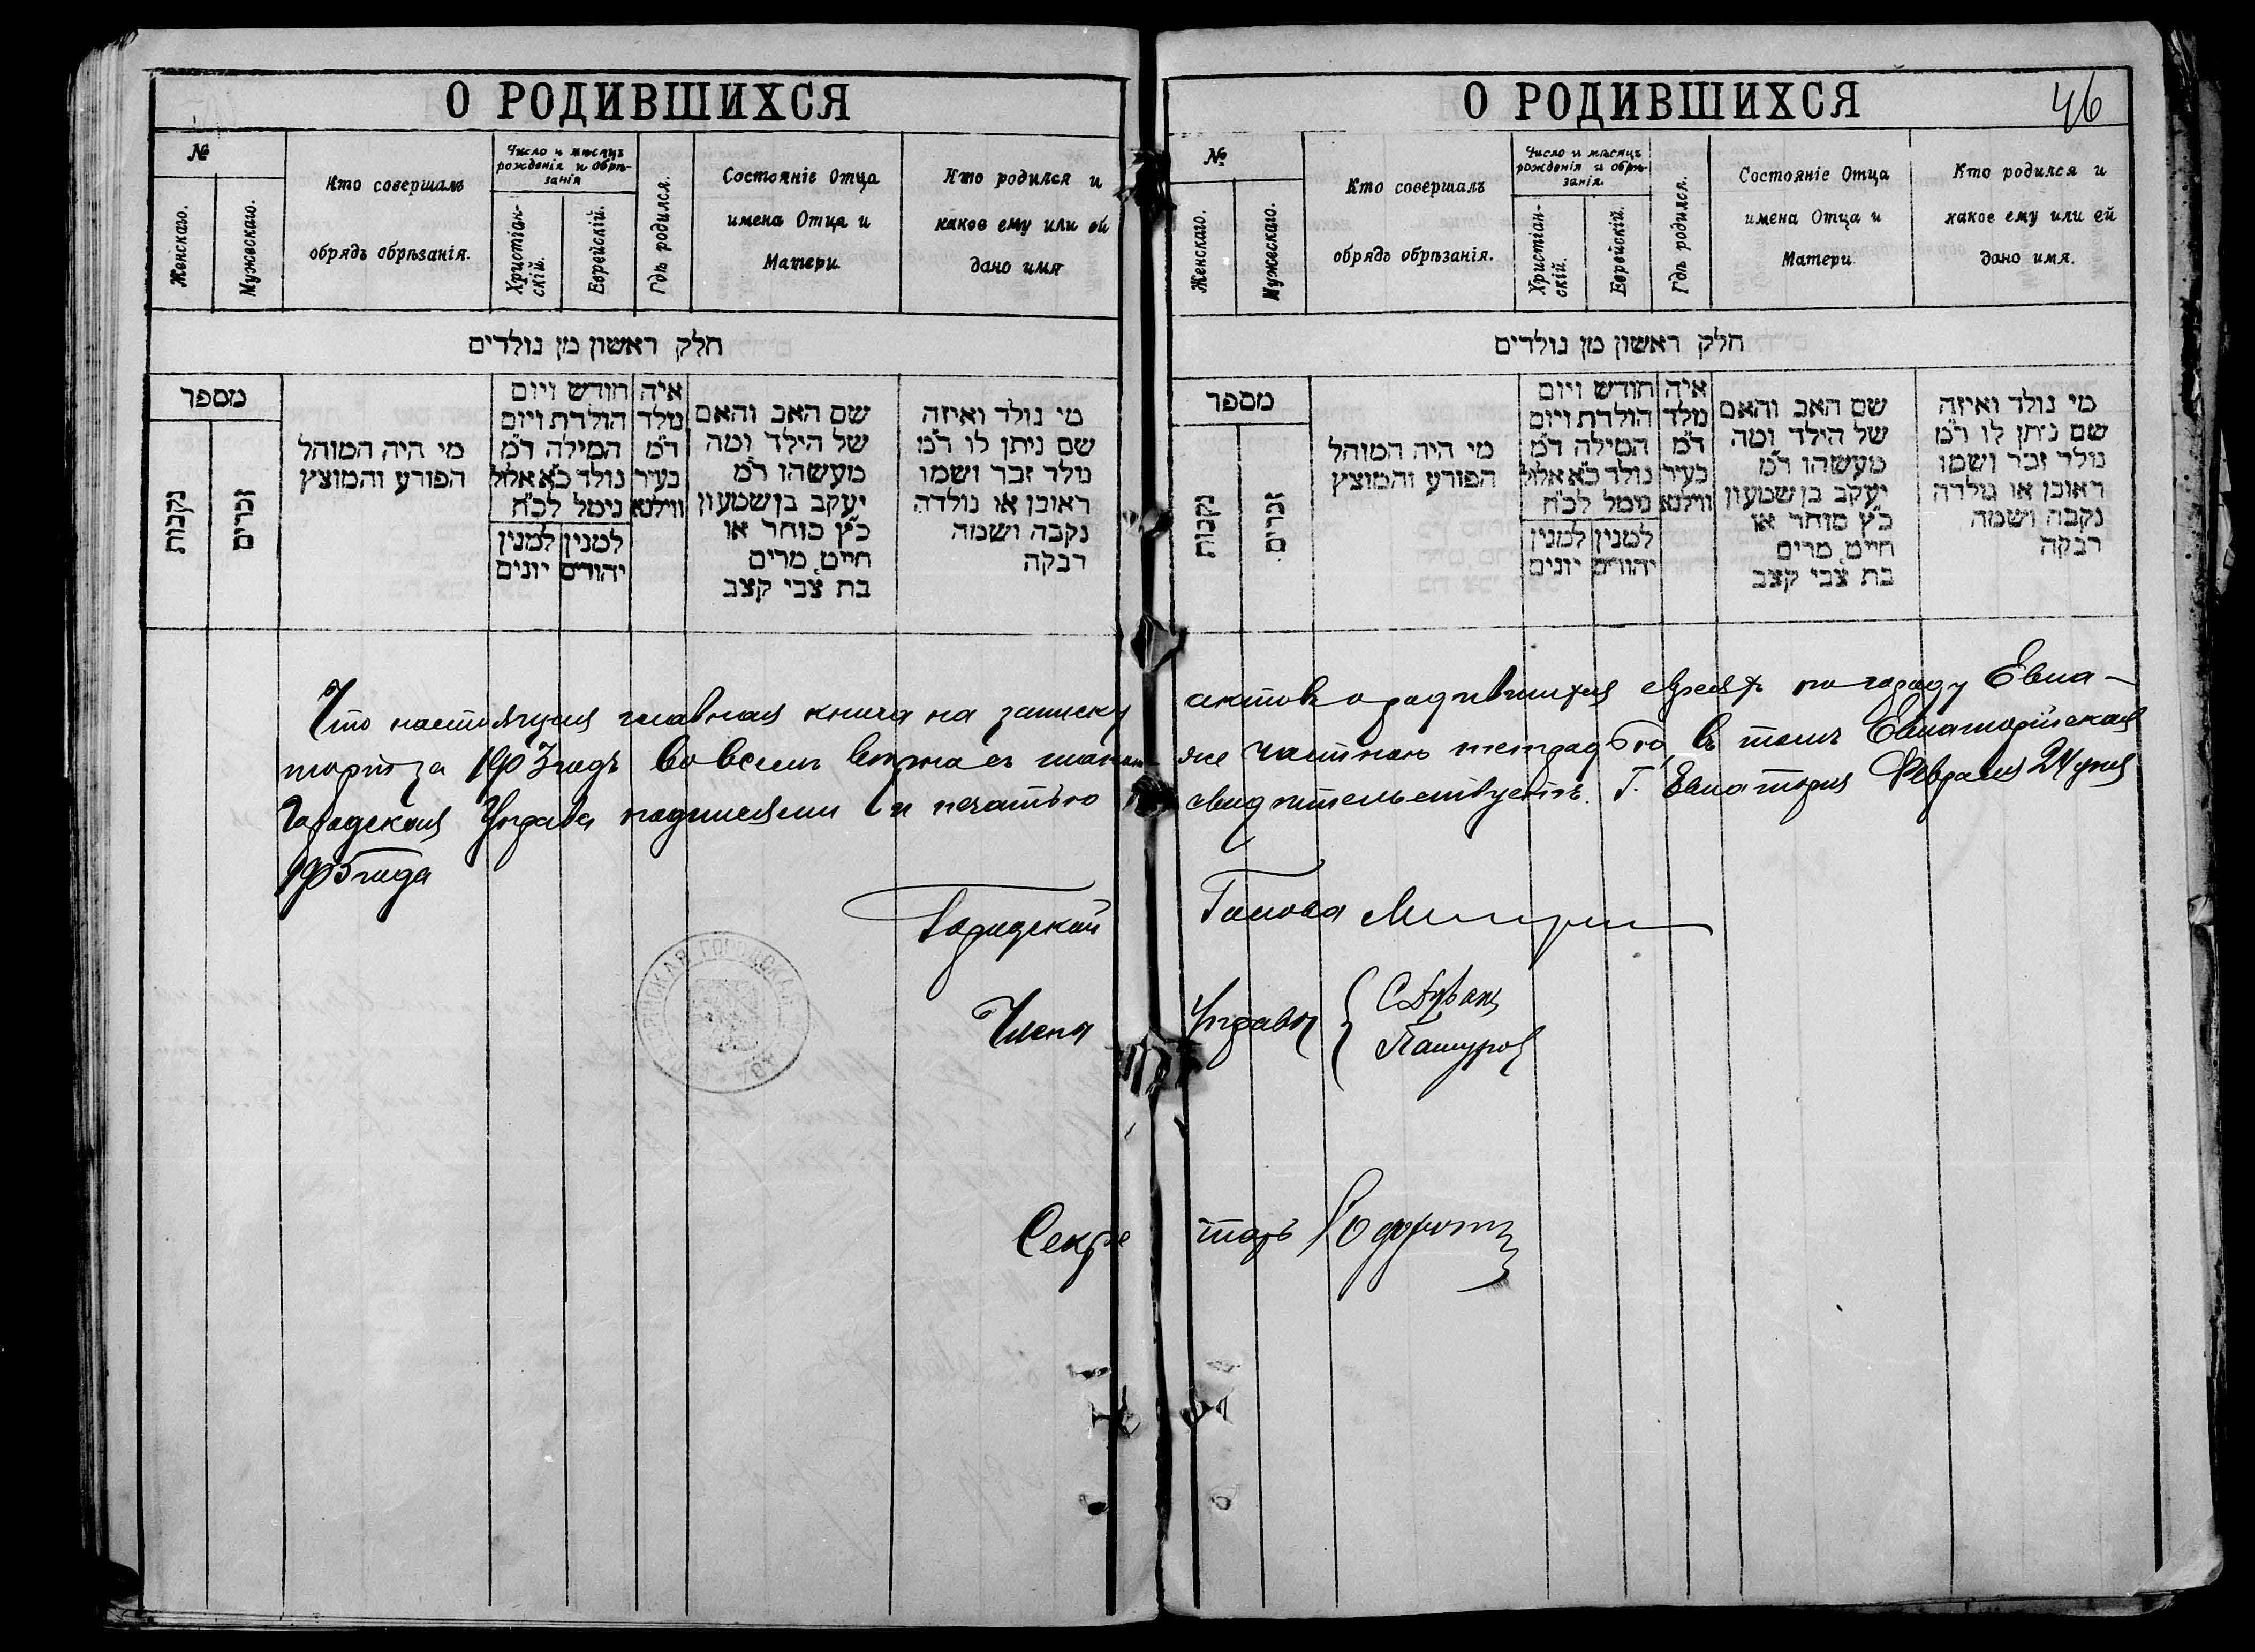 О РОДИВШИХСЯ
№
Женскаго.
Мужескаго.
Кто совершалъ
обрядъ обрѣзанія.
Число и мѣсяцъ
рожденія и обрѣ-
занія
Христіан-
скій.
Еврейскій.
Гдѣ родился.
Состояніе Отца
имена Отца и
Матери
Кто родился и
какое ему или ей
дано имя
חלק ראשון מן נולדים
מספר
נקבות
זכרים
מי היה המוהל
הפורע והמוצץ
חודש ויום
הולדת ויום
המילה ד״מ
נולד כ״א אלול
נימל לכ״ח
למנין למנין
יהודים יונים
איה
נולד
ד״מ
בעיר
ווילנא
שם האב והאם
של הילד ומה
מעשהו ר״מ
יעקב בן שמעון
כ״ץ סוחר או
חייט, מרים
בת צבי קצב
מי נולד ואיזה
שם ניתן לו ר״מ
נולד זכר ושמו
ראובן או נולדה
נקבה ושמה
רבקה
О РОДИВШИХСЯ
46
№
Женскаго.
Мужескаго.
Кто совершалъ
обрядъ обрѣзанія.
Число и мѣсяцъ
рожденія и обрѣ-
занія.
Христіан-
скій.
Еврейскій.
Гдѣ родился.
Состояніе Отца
имена Отца и
Матери
Кто родился и
какое ему или ей
дано имя.
חלק ראשון מן נולדים
מספר
נקבות
זכרים
מי היה המוהל
הפורע והמוצץ
חודש ויום
הולדת ויום
המילה ד״מ
נולד כ״א אלול
נימל לכ״ח
למנין למנין
יהודים יונים
איה
נולד
ד״מ
בעיר
ווילנא
שם האב והאם
של הילד ומה
מעשהו ר״מ
יעקב בן שמעון
כ״ץ סוחר או
חייט, מרים
בת צבי קצב
מי נולד ואיזה
שם ניתן לו ר״מ
נולד זכר ושמו
ראובן או נולדה
נקבה ושמה
רבקה
Что настоящая главная книга на записку актовъ о родившихся евреяхъ по городу Евпа-
торіи за 1903 годъ во всемъ вѣрна съ таковою же частною тетрадью, въ томъ Евпаторійская
Городская Управа подписями и печатью свидѣтельствуетъ. Г. Евпаторія Февраля 24 дня
1905 года
Городской Голова
Члены Управы { С. Дуванъ
Секретарь
ГОРОДСКАЯ